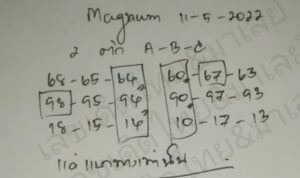 Magnum 11-5-2022
2 ตัว A-B-C
68-65-64 60-67-63
98-95-94 90-97-93
18-15-14 10-17-13